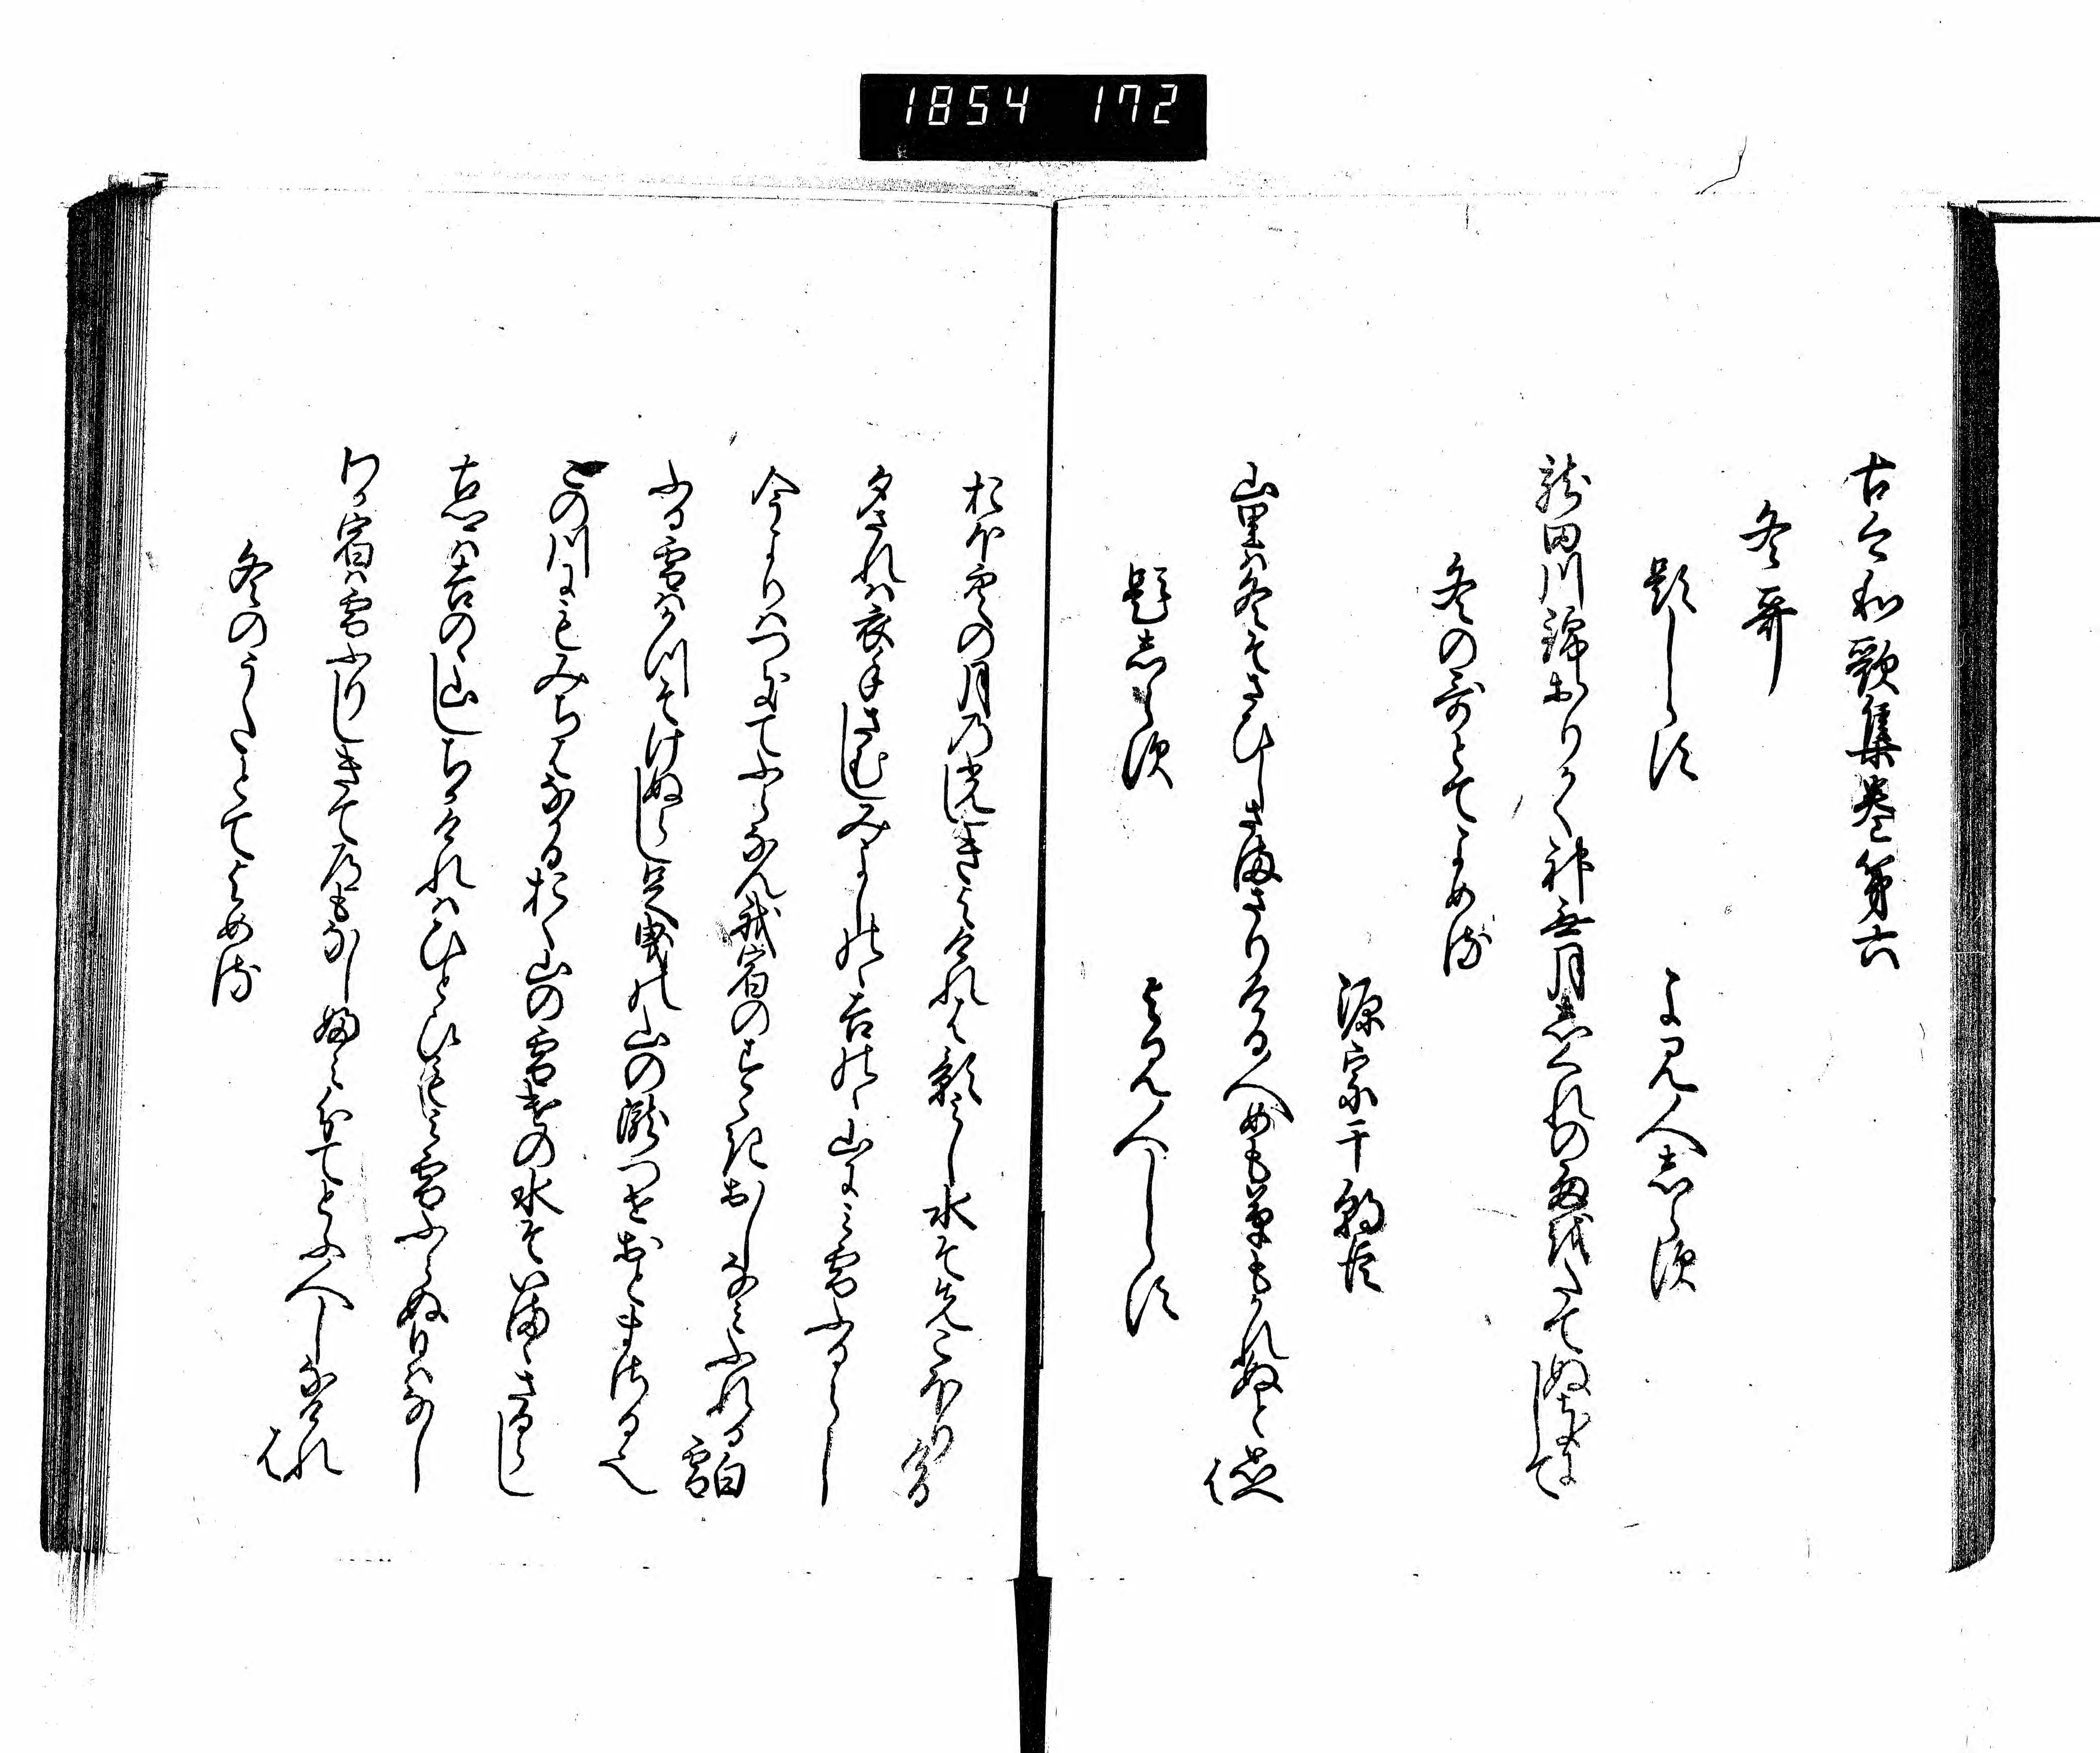 1854 172
古今和歌集巻第六
冬哥
題しらす
よみ人志らす
龍田川錦おりかく神無月志くれの雨をたてぬきにして
冬の哥とてよめる
源宗于朝臣
山里は冬そさひしさまさりける人めも草もかれぬと思へは
題志らす
よみ人しらす
おほ空の月の光しきよけれは影みし水そ先こほりける
夕されは衣手さむしみよしのゝ吉のゝ山にみ雪ふるらし
今よりはつきてふらなん我宿のすゝきおしなみふれる白雪
ふる雪はかつそけぬらし足曳の山の瀧つせおとまさるなり
この川にもみちはなかるおく山の雪けの水そいまゝさるらし
古郷は吉のゝ山しちかけれはひと日もみ雪ふらぬ日はなし
わか宿は雪ふりしきて道もなしふみわけてとふ人しなけれは
冬のうたとてよめる